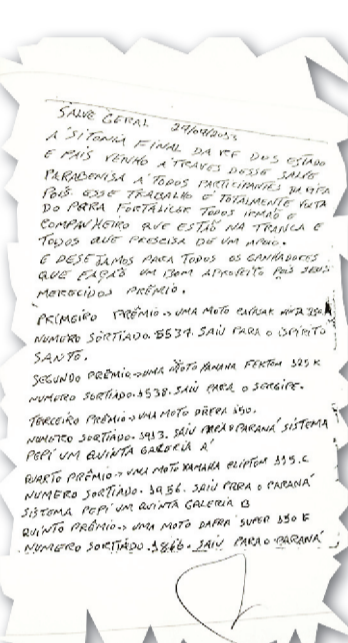 SALVE GERAL 29/07/2013
A SITONIA FINAL DA RF DOS ESTADO
E PAIS VENHO A'TRAVES DESSE SALVE
PARABENISA A TODOS PARTICIPANTES DA RIFA
POIS ESSE TRABALHO E' TOTALMENTE VOLTA
DO PARA FORTALECER TODOS IRMÃO E
COMPANHEIRO QUE ESTÃO NA TRANCA E
TODOS QUE PRECISA DE UM APOIO.
E DESEJAMOS PARA TODOS OS GANHADORES
QUE FAÇÃO UM BOM APROVEITO POIS SEUS
MERECIDOS PRÊMIO.
PRIMEIRO PRÊMIO → UMA MOTO
NUMERO SORTIADO. 5537. SAIU PARA O ISPIRITO
SANTO.
SEGUNDO PRÊMIO → UMA MOTO YAMAHA
NUMERO SORTIADO. 1538. SAIU PARA O SERGIPE.
TERCEIRO PRÊMIO → UMA MOTO 150.
NUMERO SORTIADO. SAIU PARA O PARANÁ SISTEMA
PEPI UM QUINTA GALERIA A'
QUARTO PRÊMIO → UMA MOTO YAMAHA
NUMERO SORTIADO. 1956. SAIU PARA O PARANÁ
SISTEMA PEPI UM QUINTA GALERIA B
QUINTO PRÊMIO → UMA MOTO DAFRA SUPER 150 K
NUMERO SORTIADO. SAIU PARA O PARANÁ